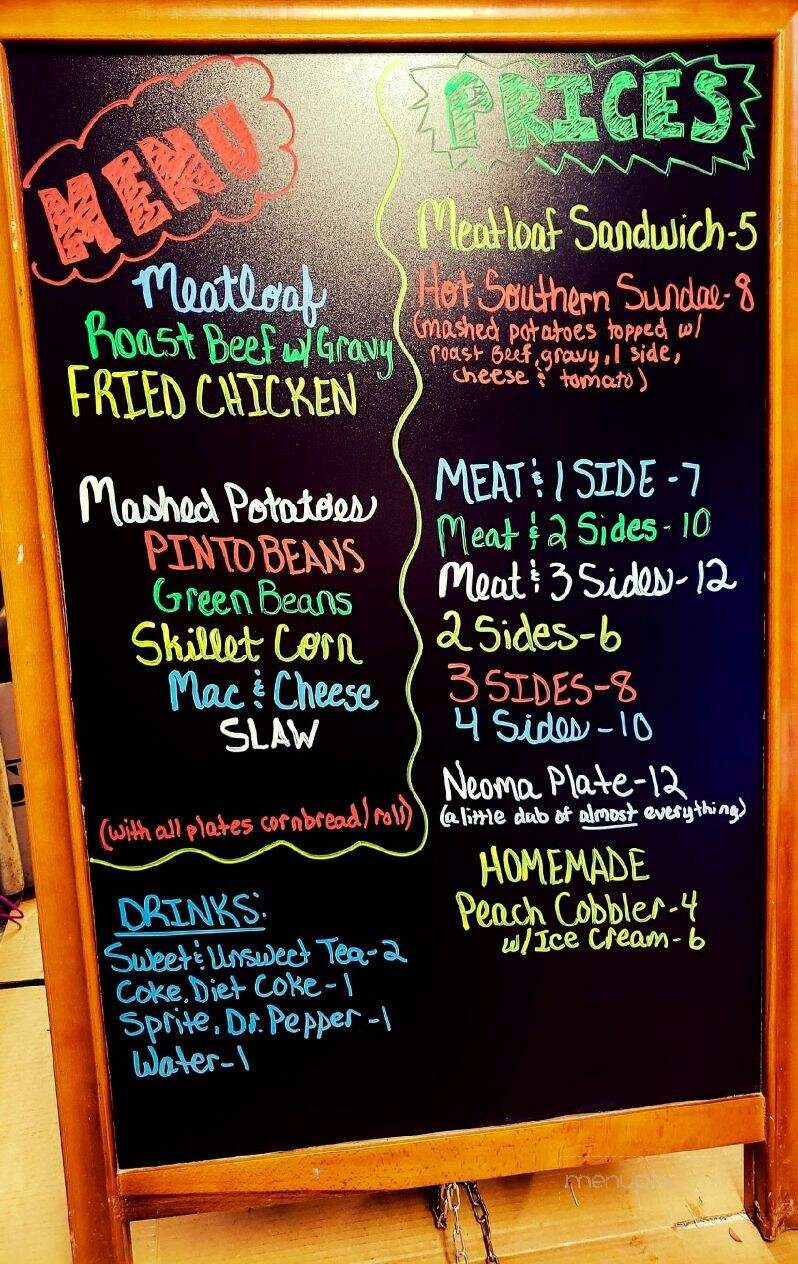 MENU
Meatloaf
Roast Beef w/ Gravy
FRIED CHICKEN
Mashed Potatoes
PINTO BEANS
Green Beans
Skillet Corn
Mac & Cheese
SLAW
(with all plates cornbread/roll)
DRINKS:
Sweet & Unsweet Tea-2
Coke, Diet Coke-1
Sprite, Dr. Pepper-1
Water-1
PRICES
Meatloaf Sandwich-5
Hot Southern Sundae-8
(mashed potatoes topped w/
roast beef, gravy, 1 side,
cheese & tomato)
MEAT & 1 SIDE-7
Meat & 2 Sides-10
Meat & 3 Sides-12
2 Sides-6
3 SIDES-8
4 Sides-10
Neoma Plate-12
(a little dab of almost everything)
HOMEMADE
Peach Cobbler-4
w/Ice Cream-6